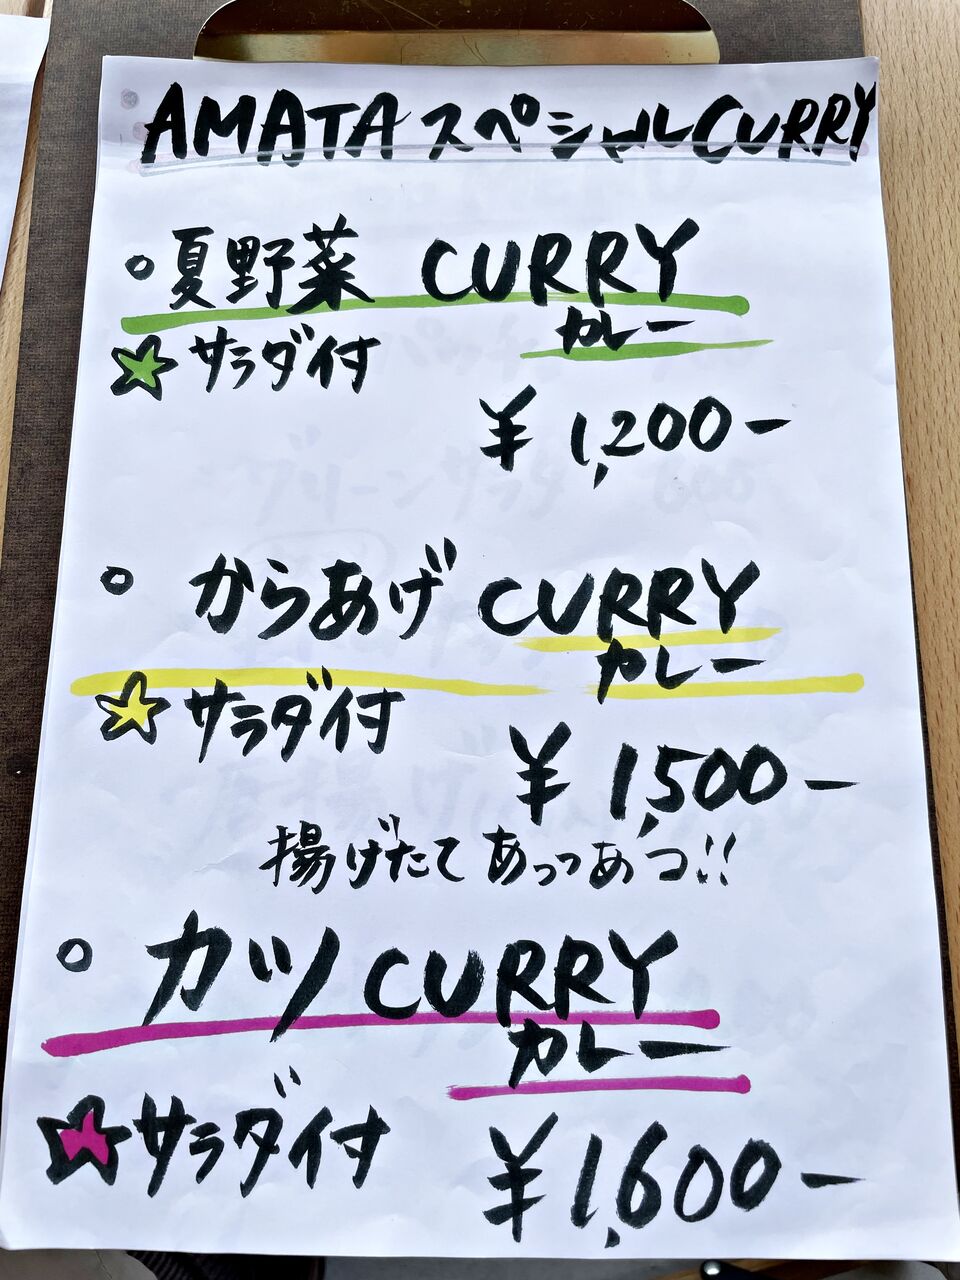 AMATA スペシャル CURRY
○ 夏野菜 CURRY
カレー
☆ サラダ付
¥1,200-
○ からあげ CURRY
カレー
☆ サラダ付
¥1,500-
揚げたて あっつあつ!!
○ カツ CURRY
カレー
☆ サラダ付
¥1,600-